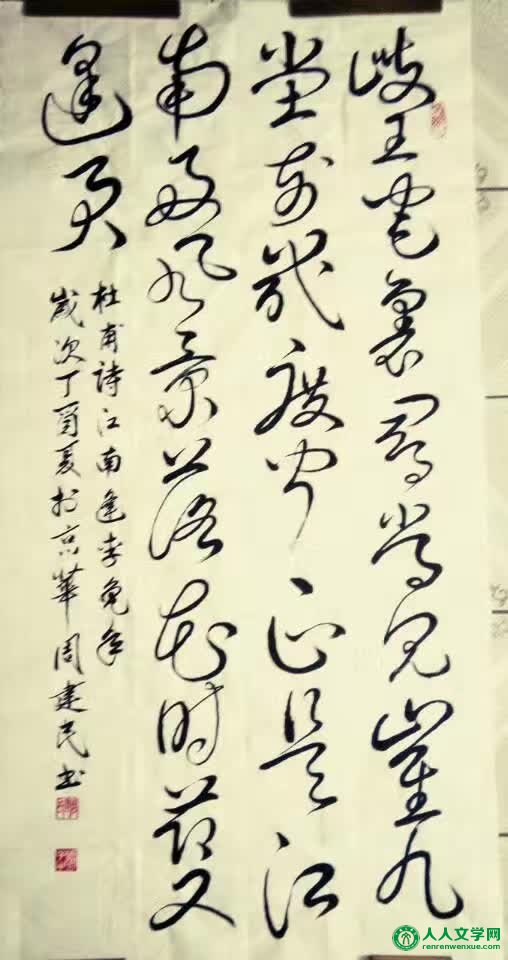 岐王宅裏尋常見崔九
堂前幾度聞正是江
南好風景落花時節又
逢君
杜甫詩江南逢李龜年
歲次丁酉夏於京華周建民書
人人文学网
renrenwenxue.com